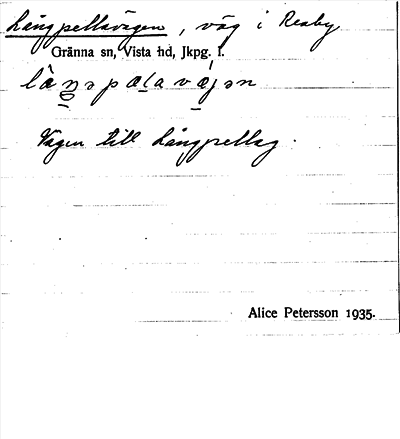 Långpellavägen, väg i Reaby
Gränna sn, Vista hd, Jkpg. l.
Vägen till Långpellag.
Alice Petersson 1935.